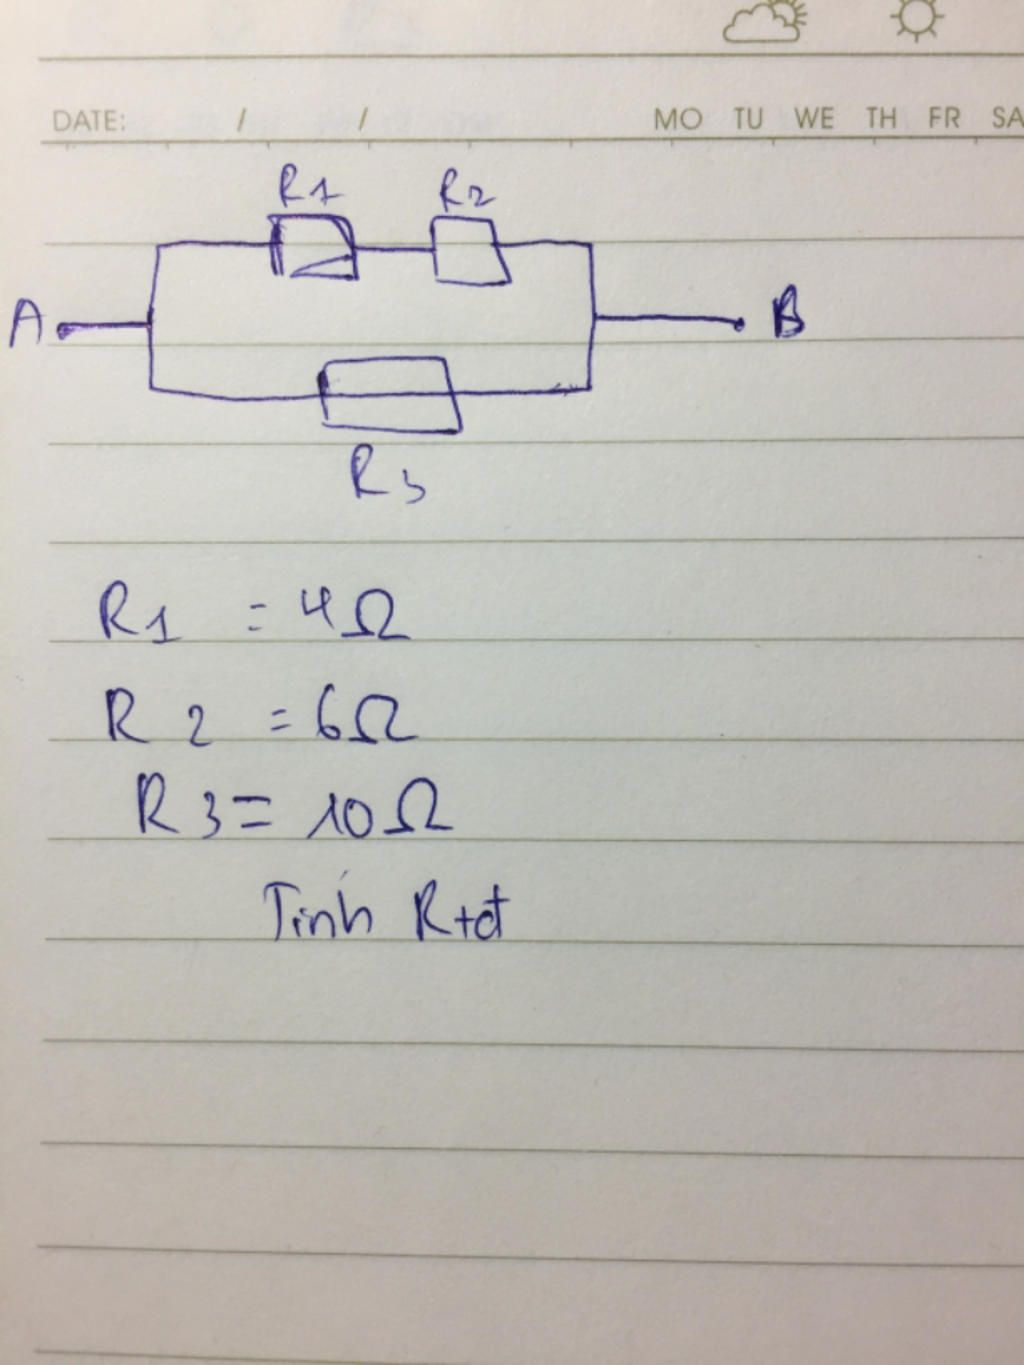 DATE: / / MO TU WE TH FR SA
R1 R2
A B
R3
R1 = 4Ω
R2 = 6Ω
R3 = 10Ω
Tính Rtđ